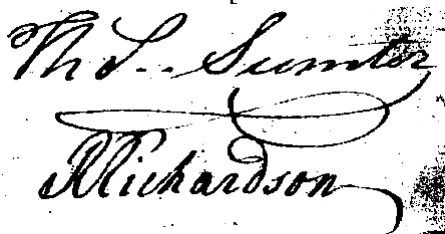 Tho.. Sumter
RRichardson